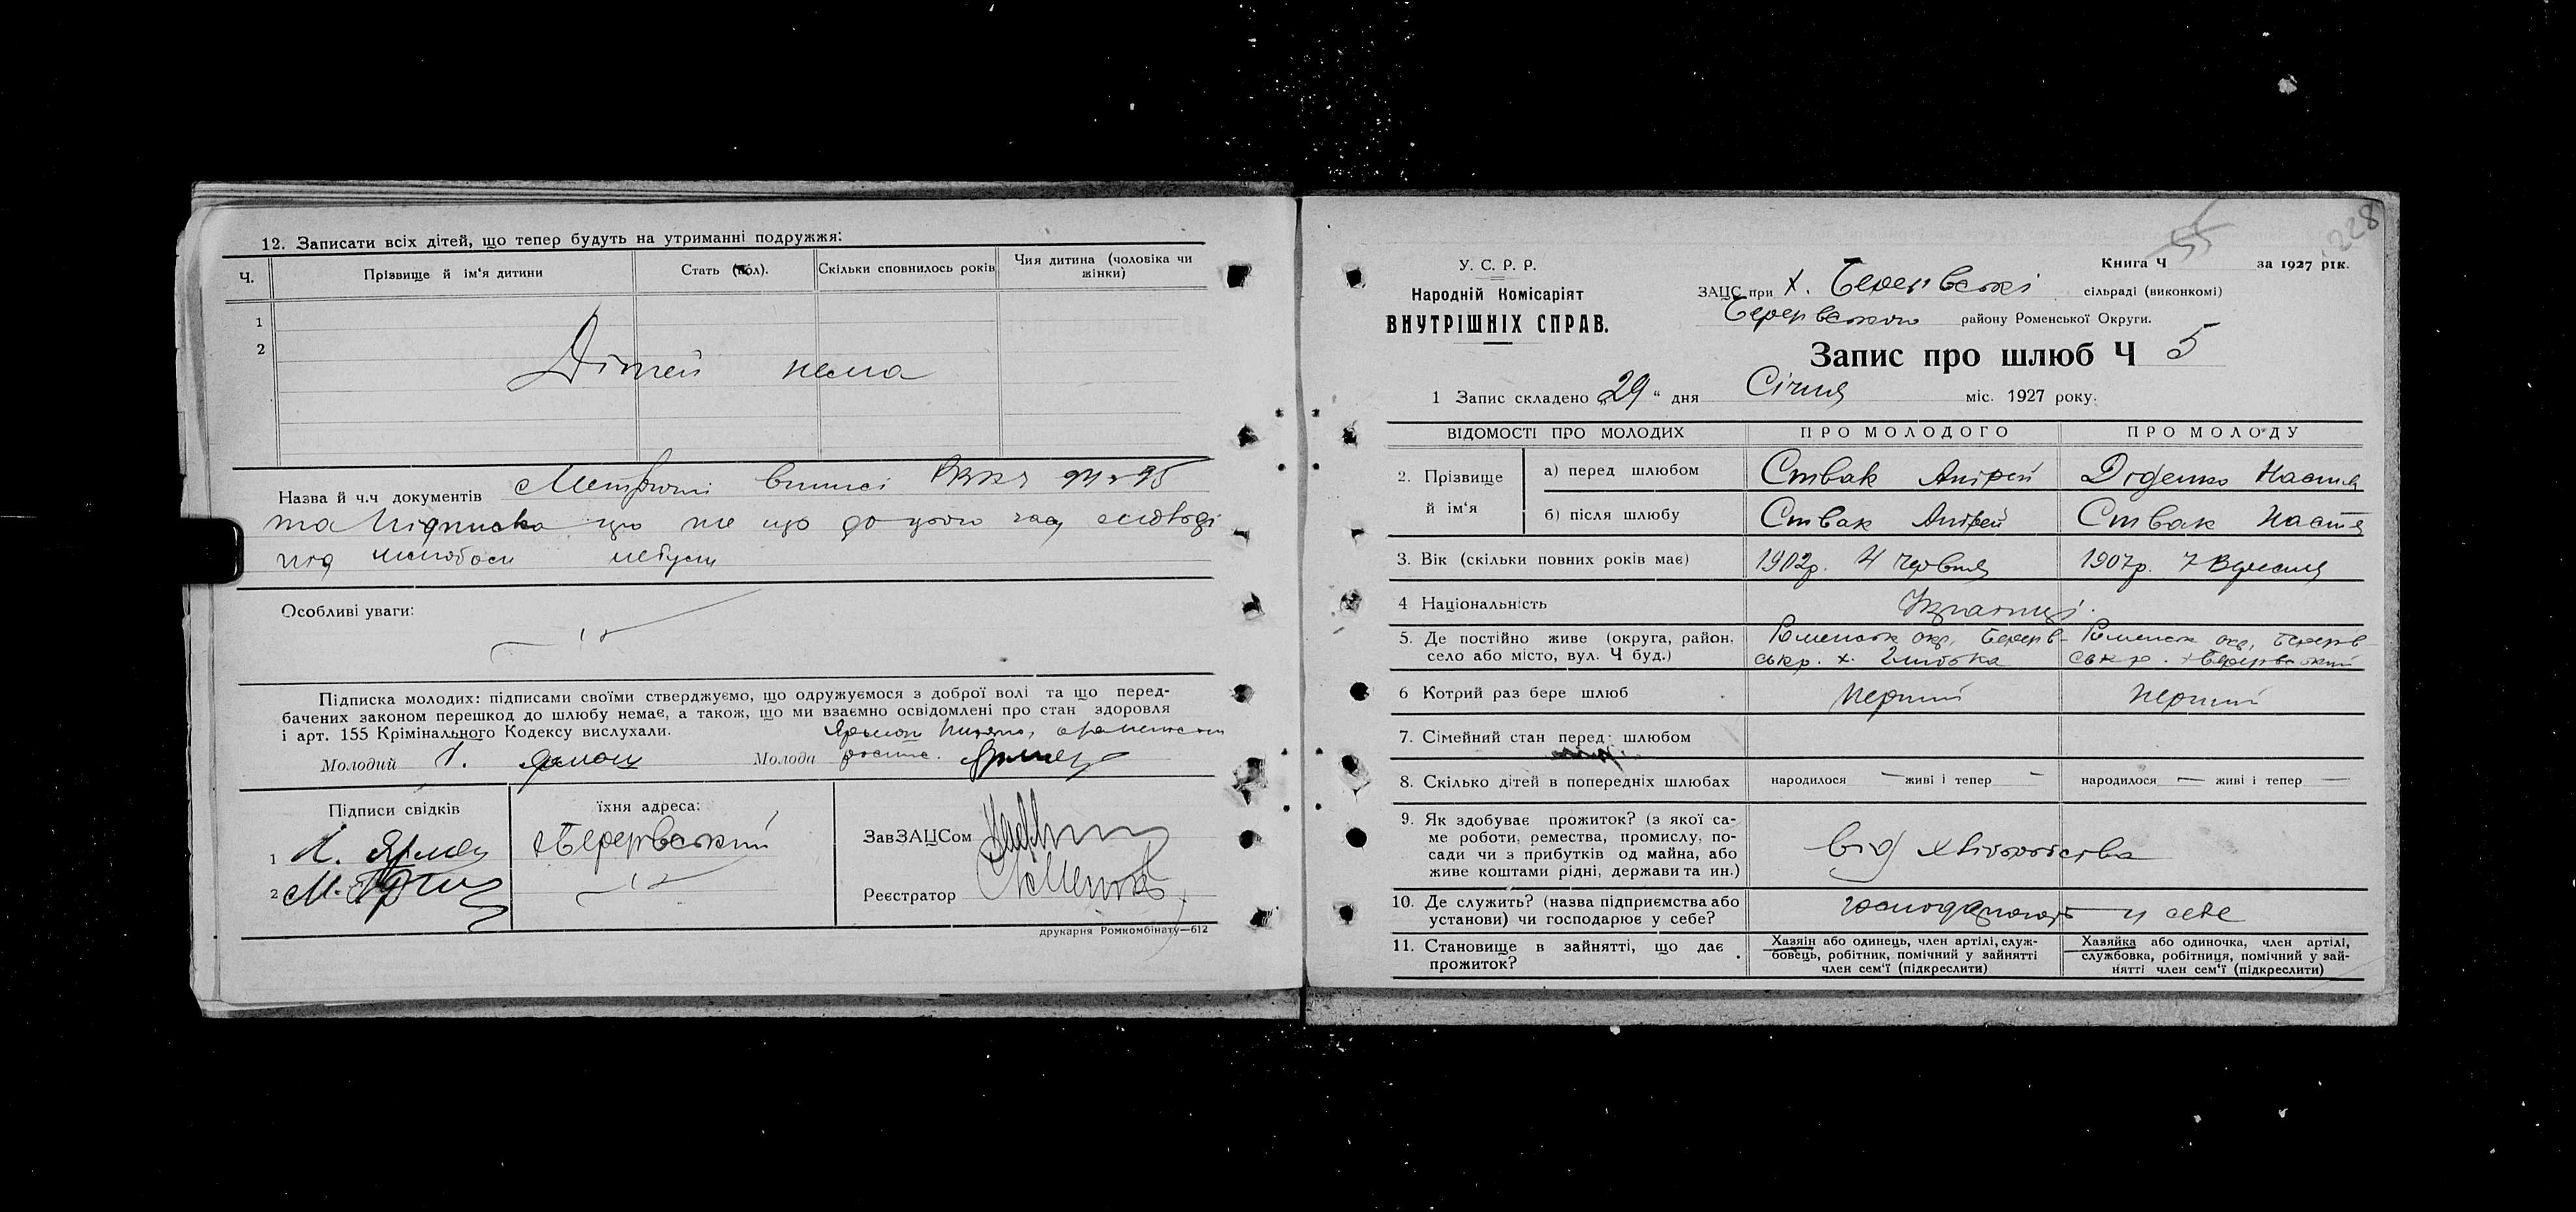 12. Записати всіх дітей, що тепер будуть на утриманні подружжя:
Ч. Прізвище й ім'я дитини Стать (пол). Скільки сповнилось років Чия дитина (чоловіка чи жінки)
1
2
Дітей нема
Назва й ч.ч документів Метричні виписі 94 95
та підписка про те що до цього часу
під шлюбом небули
Особливі уваги:
Підписка молодих: підписами своїми стверджуємо, що одружуємося з доброї волі та що перед-
бачених законом перешкод до шлюбу немає, а також, що ми взаємно освідомлені про стан здоровля
і арт. 155 Крімінального Кодексу вислухали.
Молодий Молода
Підписи свідків їхня адреса:
1
2 М.
ЗавЗАЦСом
Реєстратор
друкарня Ромкомбінату—612
228
55
У. С. Р. Р.
Народній Комісаріят
ВНУТРІШНІХ СПРАВ.
Книга Ч за 1927 рік.
ЗАЦС при х. сільраді (виконкомі)
району Роменської Округи.
Запис про шлюб Ч 5
1 Запис складено „29“ дня Січня міс. 1927 року.
ВІДОМОСТІ ПРО МОЛОДИХ ПРО МОЛОДОГО ПРО МОЛОДУ
2. Прізвище й ім'я
а) перед шлюбом Співак Андрей Діденко Настя
б) після шлюбу Співак Андрей Співак Настя
3. Вік (скільки повних років має) 1902р. 4 Червня 1907р. 7 Вересня
4 Національність Українці.
5. Де постійно живе (округа, район, село або місто, вул. Ч буд.) Роменськ окр, х. Глибока Роменськ окр,
6 Котрий раз бере шлюб перший перший
7. Сімейний стан перед шлюбом
8. Скілько дітей в попередніх шлюбах народилося — живі і тепер — народилося — живі і тепер —
9. Як здобуває прожиток? (з якої са-
ме роботи, ремества, промислу, по-
сади чи з прибутків од майна, або
живе коштами рідні, держави та ин.) від хліборобства
10. Де служить? (назва підприємства або
установи) чи господарює у себе? господарюють у себе
11. Становище в зайнятті, що дає
прожиток?
Хазяін або одинець, член артілі, служ-
бовець, робітник, помічний у зайнятті
член сем'ї (підкреслити)
Хазяйка або одиночка, член артілі,
службовка, робітниця, помічний у зай-
нятті член сем'ї (підкреслити)